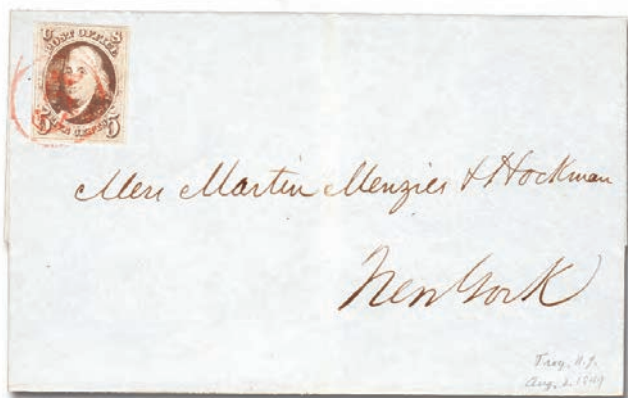 U S
POST OFFICE
5 FIVE CENTS 5
Mess Martin Menzies & Hockman
New York
Troy, N.Y.
Aug. 2. 1849